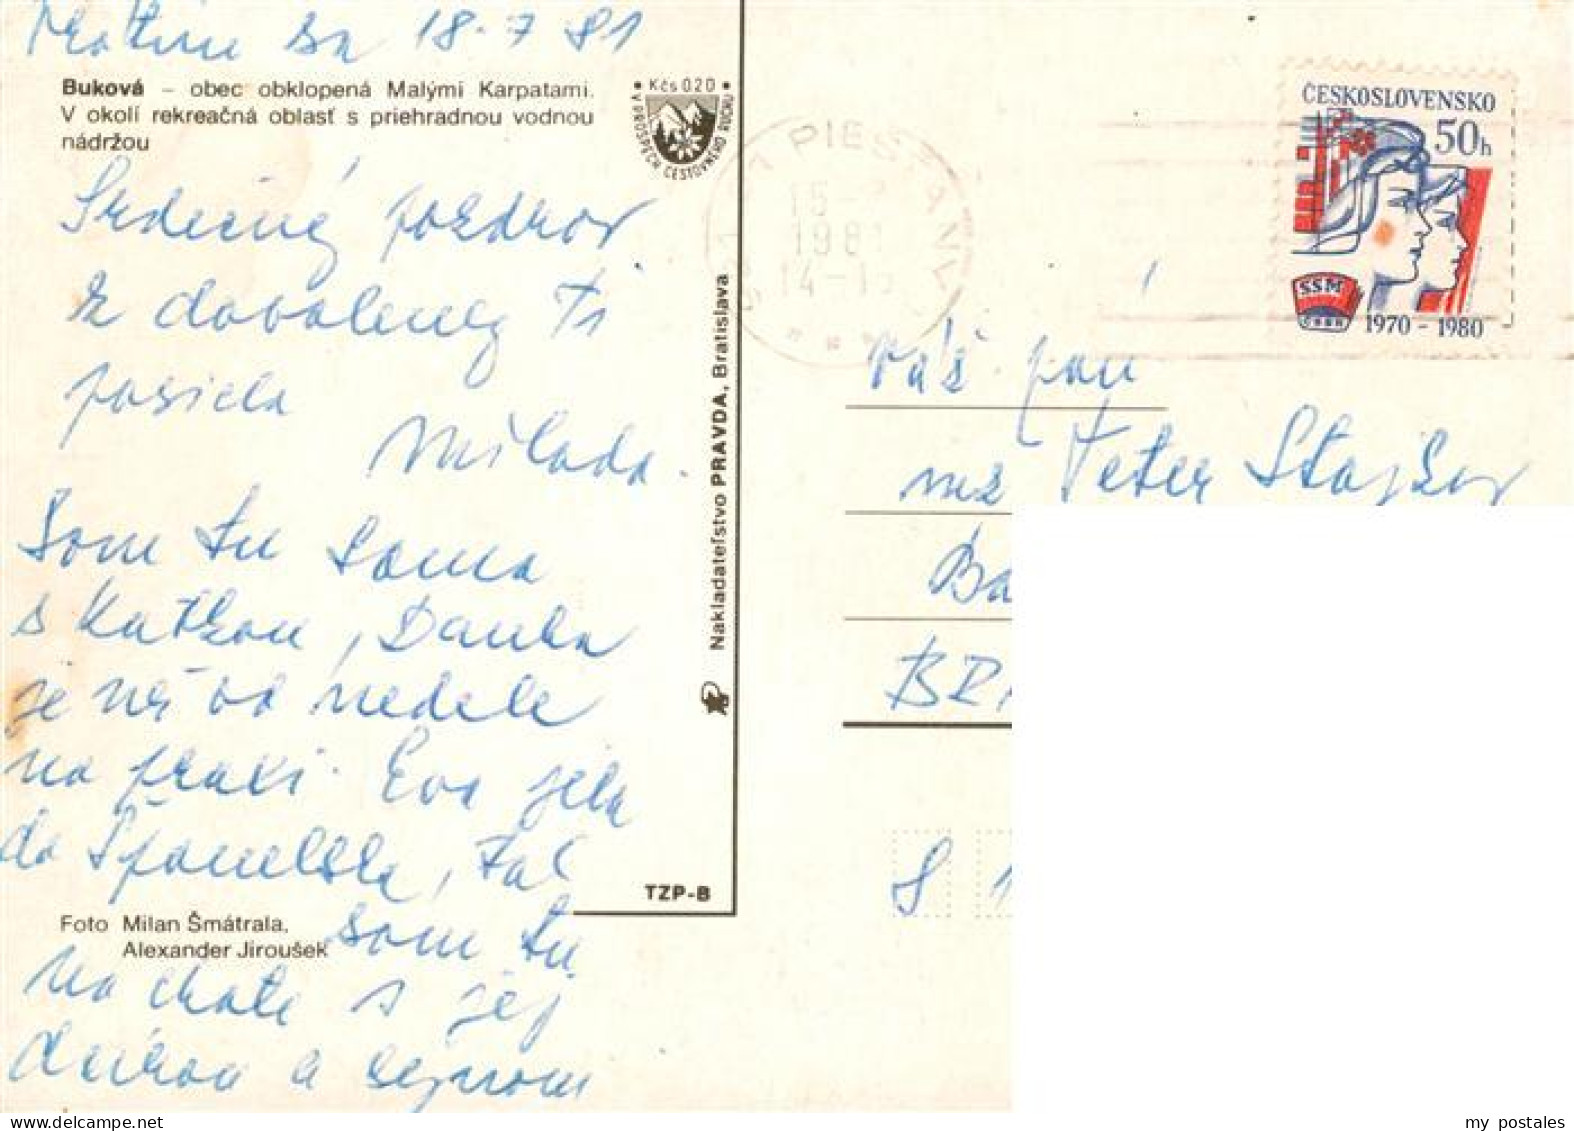 18.7 81
Buková – obec obklopená Malými Karpatami.
V okolí rekreačná oblasť s priehradnou vodnou
nádržou
• Kčs 0.20 •
V PROSPECH CESTOVNÉHO RUCHU
Srdečný pozdrav
z dovolenej Ti
posiela
Milada.
Som tu sama
s Katkou, Danka
je už od nedele
na praxi. Eva jela
do Španielska, tak
som tu
na chate s jej
dcérou a synom
Foto Milan Šmátrala,
Alexander Jiroušek
Nakladateľstvo PRAVDA, Bratislava
TZP-B
PIEŠŤANY
1981
ČESKOSLOVENSKO
50h
SSM
1970 - 1980
Váž. pan
Peter
Ba
BRA
8 1
my postales